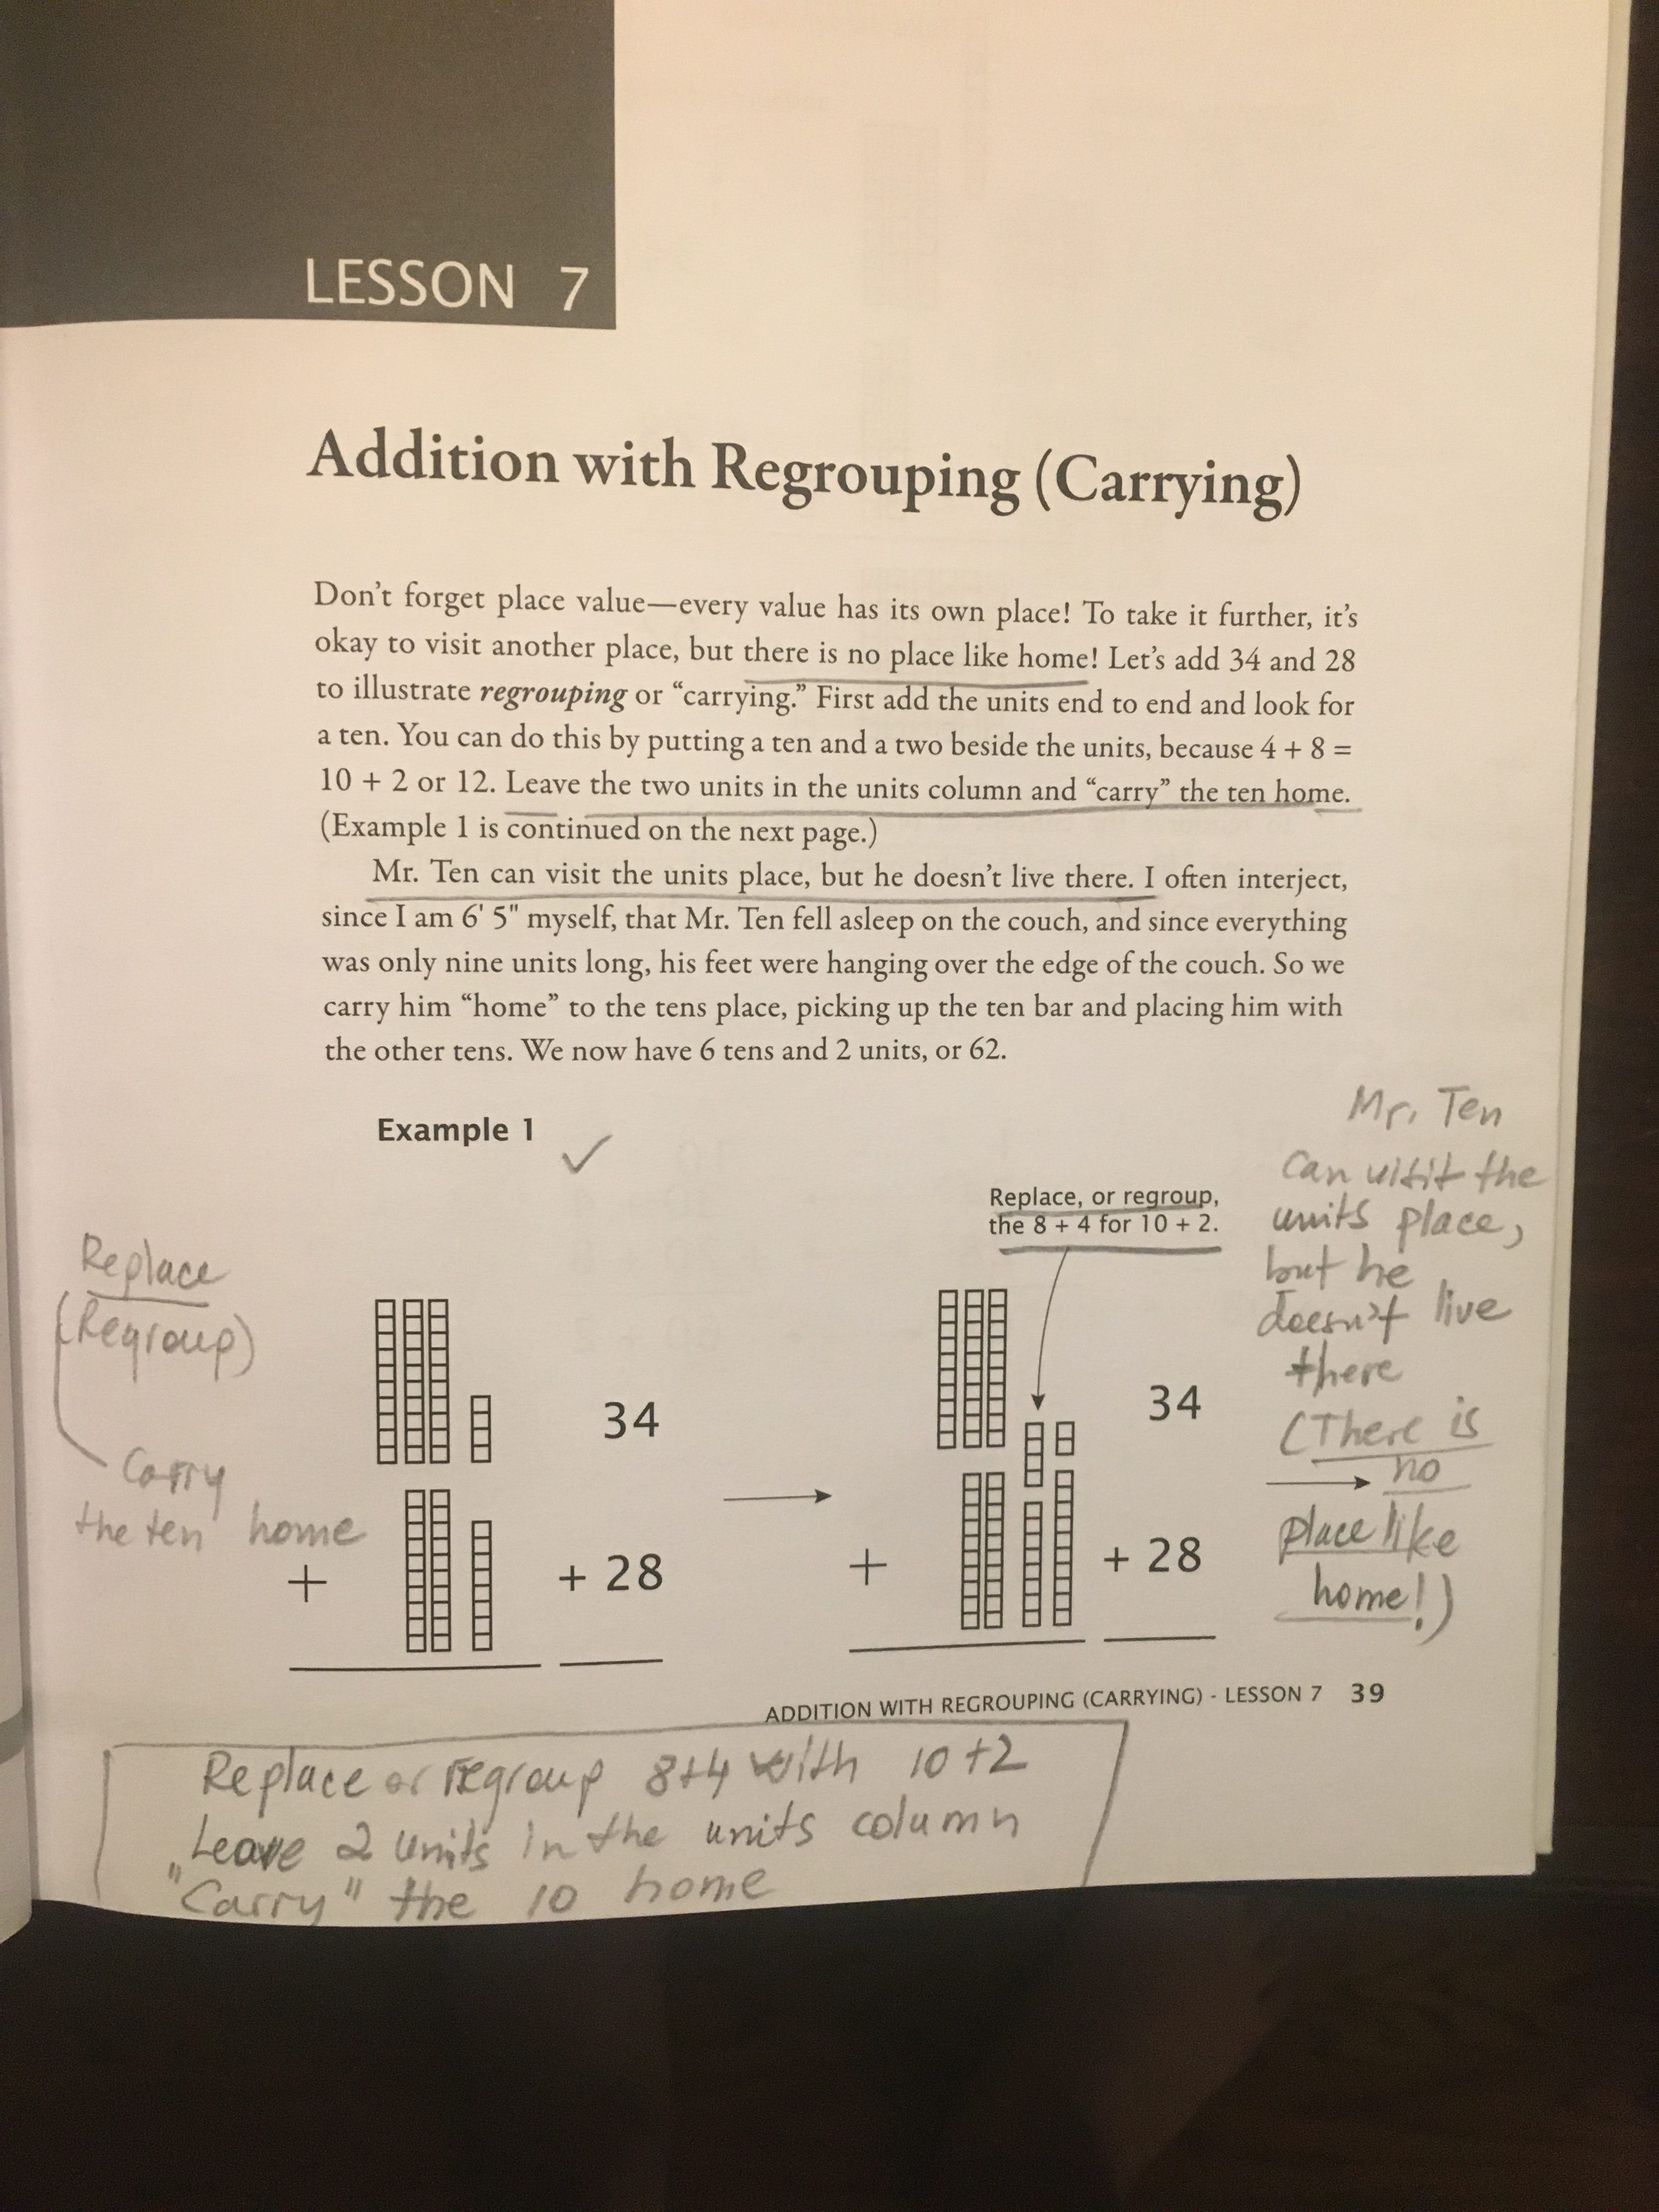 LESSON 7
Addition with Regrouping (Carrying)
Don't forget place value—every value has its own place! To take it further, it's
okay to visit another place, but there is no place like home! Let's add 34 and 28
to illustrate regrouping or “carrying.” First add the units end to end and look for
a ten. You can do this by putting a ten and a two beside the units, because 4 + 8 =
10 + 2 or 12. Leave the two units in the units column and “carry” the ten home.
(Example 1 is continued on the next page.)
Mr. Ten can visit the units place, but he doesn't live there. I often interject,
since I am 6' 5" myself, that Mr. Ten fell asleep on the couch, and since everything
was only nine units long, his feet were hanging over the edge of the couch. So we
carry him “home” to the tens place, picking up the ten bar and placing him with
the other tens. We now have 6 tens and 2 units, or 62.
Example 1 ✓
Replace, or regroup,
the 8 + 4 for 10 + 2.
Replace
(Regroup)
Carry
the ten home
34
+
+ 28
34
+
+ 28
Mr. Ten
can visit the
units place,
but he
doesn't live
there
(There is
no
place like
home!)
ADDITION WITH REGROUPING (CARRYING) - LESSON 7 39
Replace or regroup 8+4 with 10+2
Leave 2 units in the units column
"Carry" the 10 home